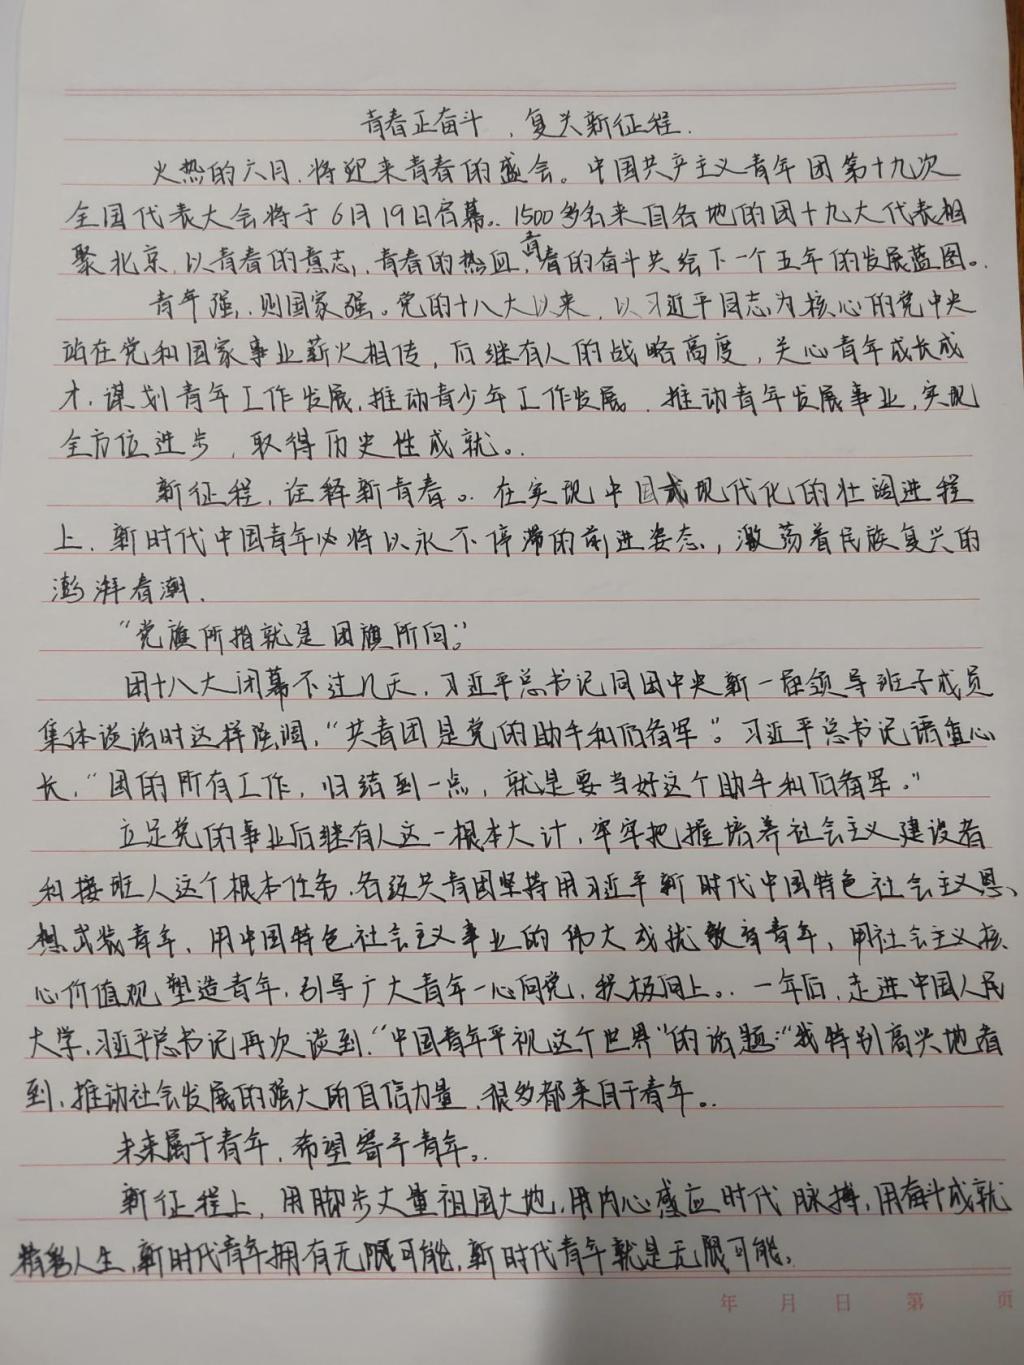 青春正奋斗，复兴新征程.
火热的六月，将迎来青春的盛会。中国共产主义青年团第十九次
全国代表大会将于6月19日启幕。1500多名来自各地的团十九大代表相
聚北京，以青春的意志，青春的热血，青春的奋斗共绘下一个五年的发展蓝图。
青年强，则国家强。党的十八大以来，以习近平同志为核心的党中央
站在党和国家事业薪火相传，后继有人的战略高度，关心青年成长成
才，谋划青年工作发展，推动青少年工作发展，推动青年发展事业，实现
全方位进步，取得历史性成就。
新征程，诠释新青春。在实现中国式现代化的壮阔进程
上，新时代中国青年必将以永不停滞的前进姿态，激荡着民族复兴的
澎湃春潮.
“党旗所指就是团旗所向。”
团十八大闭幕不过几天，习近平总书记同团中央新一届领导班子成员
集体谈话时这样强调，“共青团是党的助手和后备军”。习近平总书记语重心
长，“团的所有工作，归结到一点，就是要当好这个助手和后备军。”
立足党的事业后继有人这一根本大计，牢牢把握培养社会主义建设者
和接班人这个根本任务，各级共青团坚持用习近平新时代中国特色社会主义思
想武装青年，用中国特色社会主义事业的伟大成就教育青年，用社会主义核
心价值观塑造青年，引导广大青年一心向党，积极向上。一年后，走进中国人民
大学，习近平总书记再次谈到，“中国青年平视这个世界”的话题：“我特别高兴地看
到，推动社会发展的强大的自信力量，很多都来自于青年。
未来属于青年，希望寄予青年。
新征程上，用脚步丈量祖国大地，用内心感应时代脉搏，用奋斗成就
精彩人生，新时代青年拥有无限可能，新时代青年就是无限可能。
年 月 日 第 页